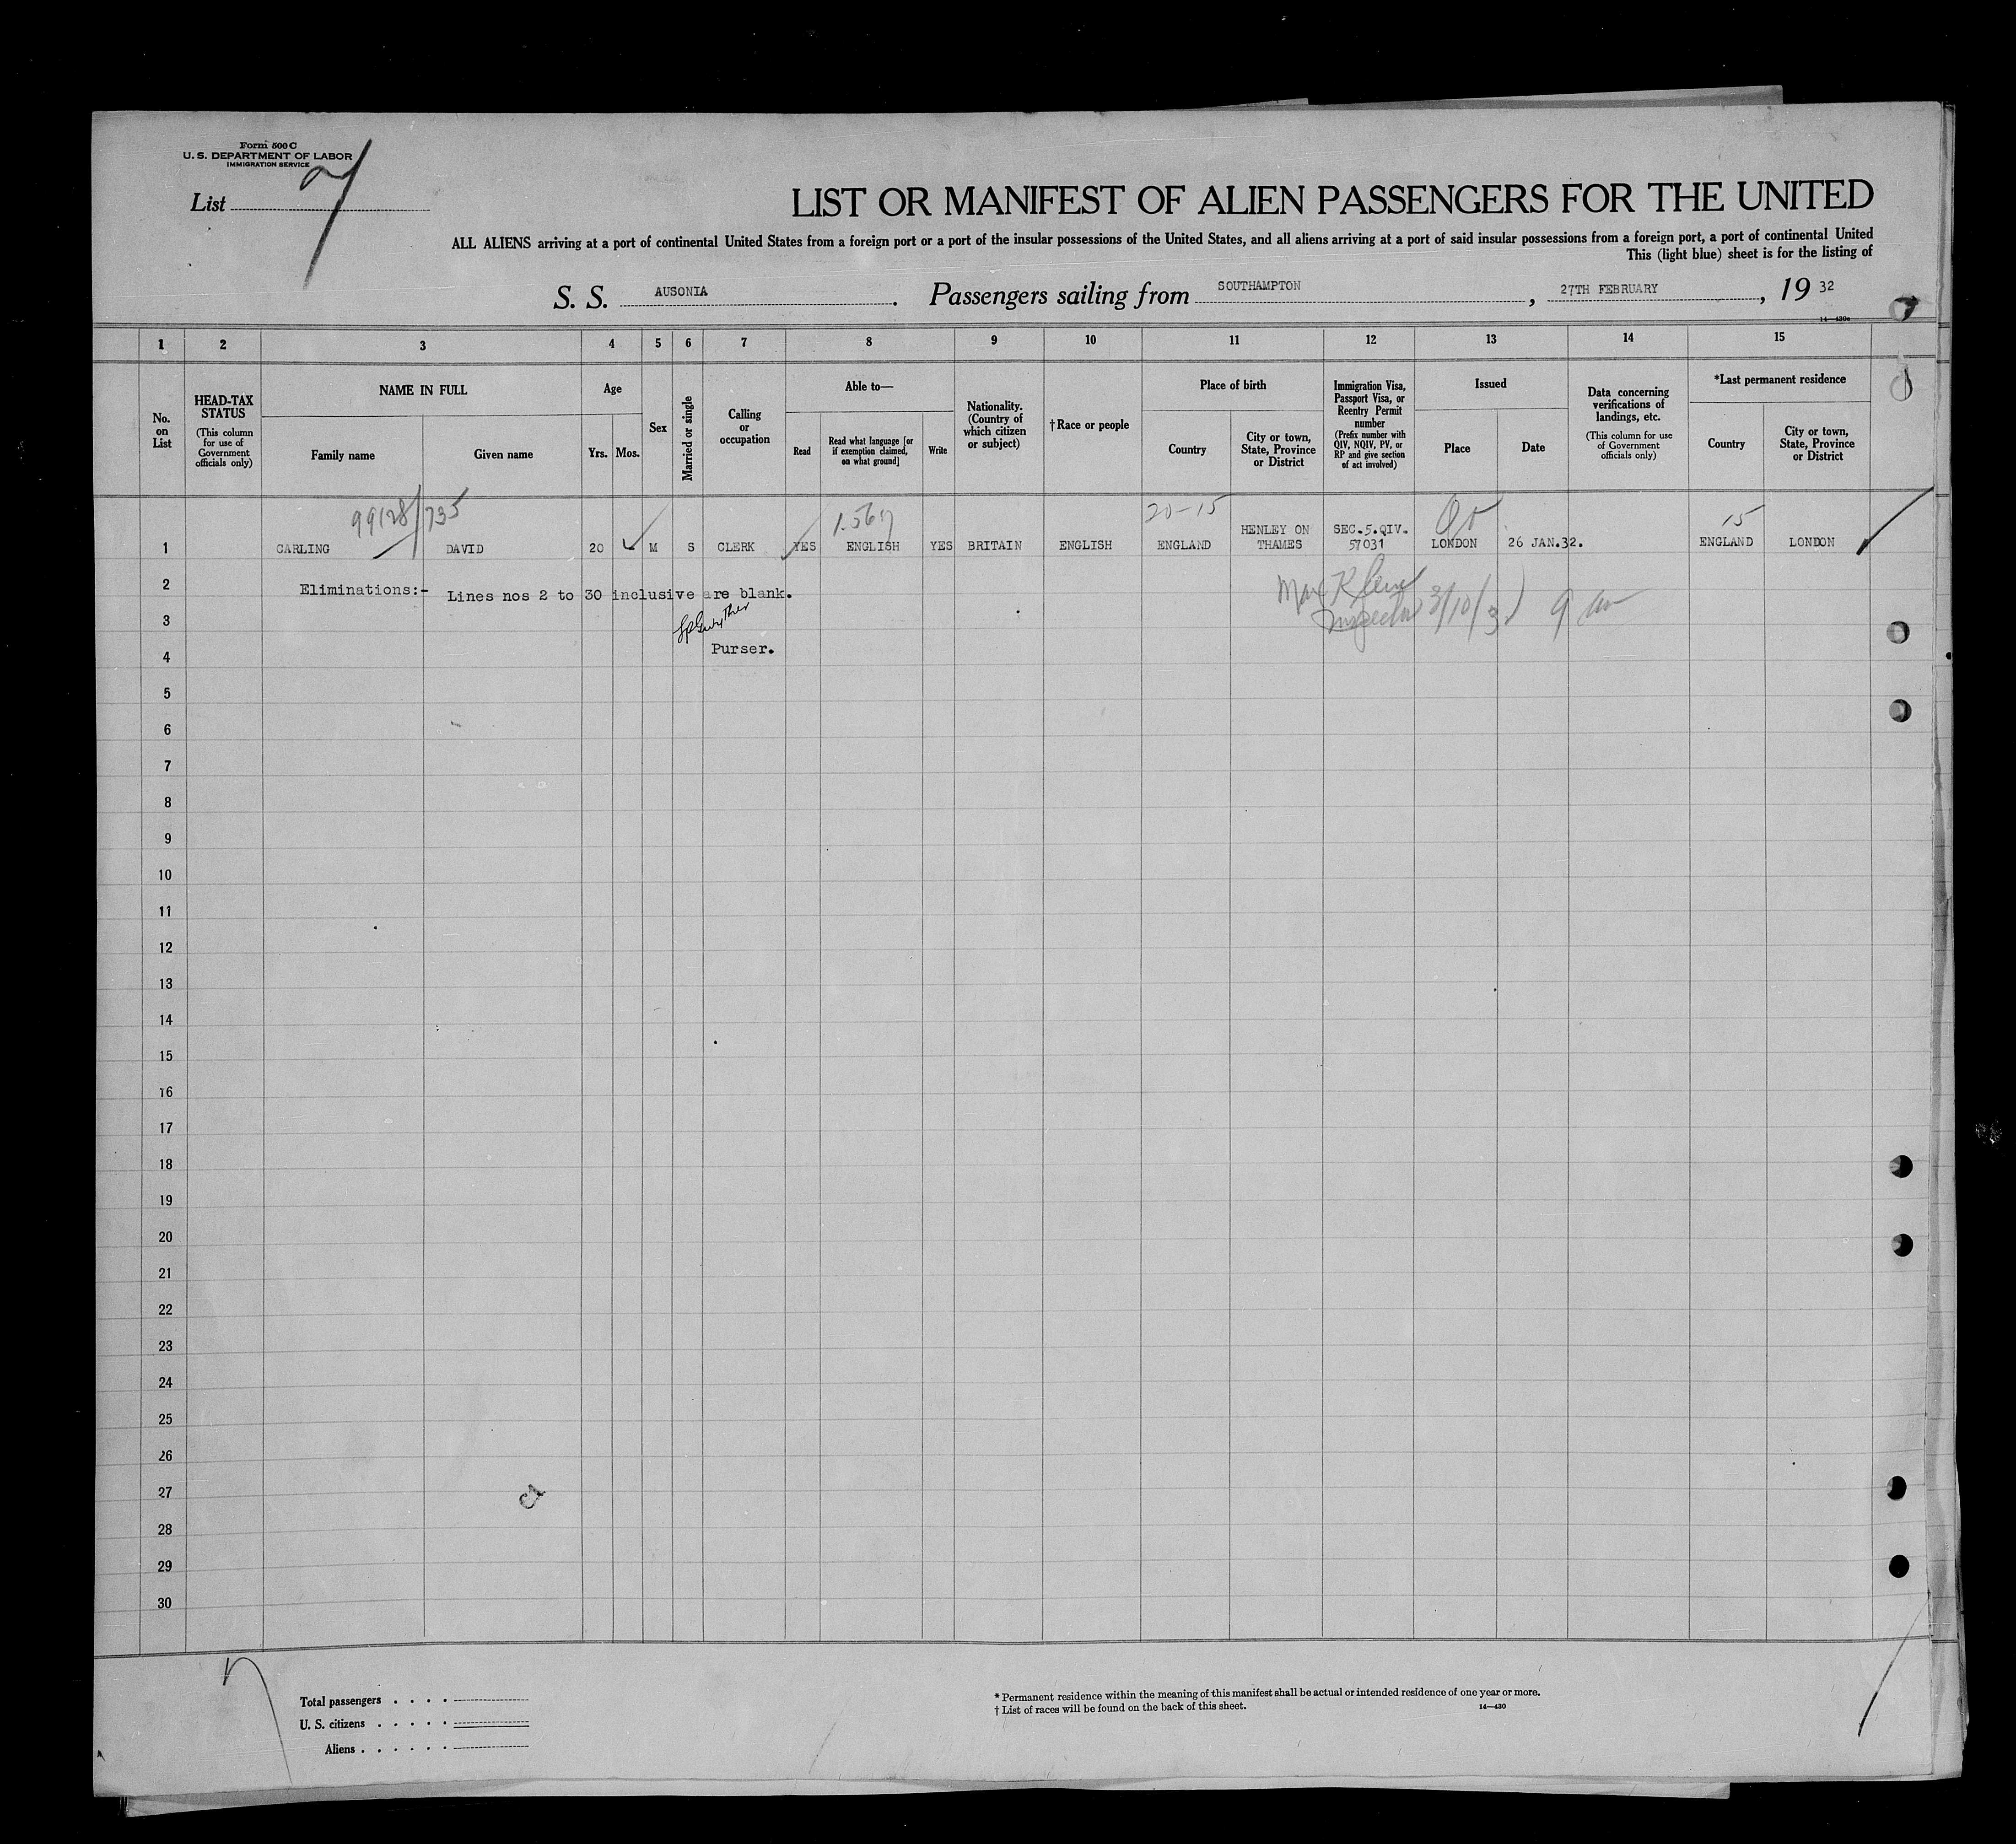 Form 500 C
U. S. DEPARTMENT OF LABOR
IMMIGRATION SERVICE
List 7
LIST OR MANIFEST OF ALIEN PASSENGERS FOR THE UNITED
ALL ALIENS arriving at a port of continental United States from a foreign port or a port of the insular possessions of the United States, and all aliens arriving at a port of said insular possessions from a foreign port, a port of continental United
This (light blue) sheet is for the listing of
S. S. AUSONIA. Passengers sailing from SOUTHAMPTON, 27TH FEBRUARY, 19 32
7
14—430a
1 2 3 4 5 6 7 8 9 10 11 12 13 14 15
No. on List
HEAD-TAX STATUS
(This column for use of Government officials only)
NAME IN FULL
Family name
Given name
Age
Yrs.
Mos.
Sex
Married or single
Calling or occupation
Able to—
Read
Read what language [or if exemption claimed, on what ground]
Write
Nationality. (Country of which citizen or subject)
†Race or people
Place of birth
Country
City or town, State, Province or District
Immigration Visa, Passport Visa, or Reentry Permit number
(Prefix number with QIV, NQIV, PV, or RP and give section of act involved)
Issued
Place
Date
Data concerning verifications of landings, etc.
(This column for use of Government officials only)
*Last permanent residence
Country
City or town, State, Province or District
99128/735
20-15
15
1 CARLING DAVID 20 M S CLERK YES ENGLISH YES BRITAIN ENGLISH ENGLAND HENLEY ON THAMES SEC.5.QIV. 57031 LONDON 26 JAN.32. ENGLAND LONDON
2 Eliminations:- Lines nos 2 to 30 inclusive are blank.
Max Klein
3
Inspector 3/10/32 9 am
Purser.
4
5
6
7
8
9
10
11
12
13
14
15
16
17
18
19
20
21
22
23
24
25
26
27
28
29
30
Total passengers . . . .
U. S. citizens . . . . .
Aliens . . . . . .
* Permanent residence within the meaning of this manifest shall be actual or intended residence of one year or more.
† List of races will be found on the back of this sheet.
14—430